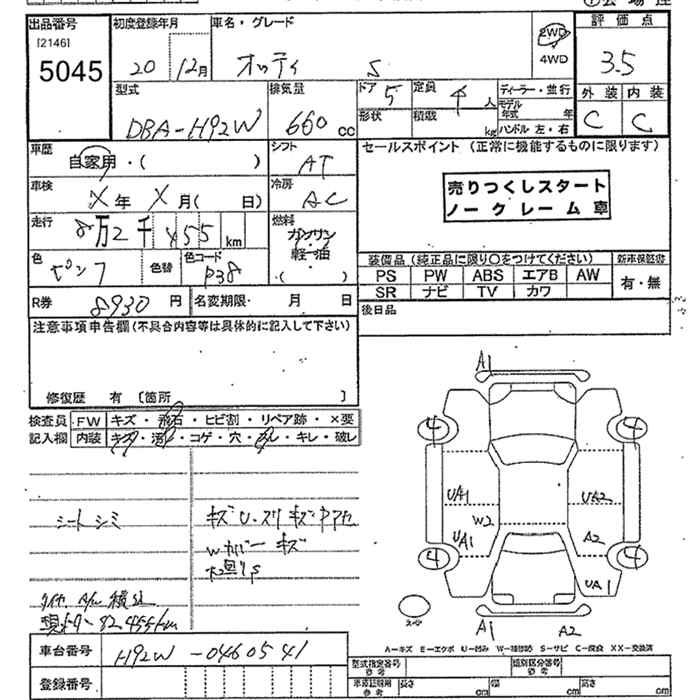 出品番号 初度登録年月 車名・グレード 2WD 評価点
[2146] 4WD
5045 20 12月 オッティ S 3.5
型式 排気量 ドア 5 定員 4人 ディーラー・並行 外装 内装
DBA-H92W 660cc 形状 積載 kg モデル年式 年 C C
ハンドル 左・右
車歴 自家用・( ) シフト AT セールスポイント (正常に機能するものに限ります)
車検 X年 X月( 日) 冷房 AC 売りつくしスタート
ノークレーム車
走行 8万2千455km 燃料 ガソリン・軽油・( )
色 ピンク 色替 色コード P38 装備品(純正品に限り〇をつけてください) 新車保証書
PS PW ABS エアB AW 有・無
SR ナビ TV カワ
R券 8930円 名変期限・ 月 日 後日品
注意事項申告欄(不具合内容等は具体的に記入して下さい)
修復歴 有 [箇所 ]
検査員 FW キズ・飛石・ヒビ割・リペア跡・×要
記入欄 内装 キズ・汚レ・コゲ・穴・スレ・キレ・破レ
A1
4 4
UA1 UA2
シートシミ W2
UA1 A2
Wカバーキズ
4 4
UA1
スペア
現メーター82455km
A1 A2
A=キズ E=エクボ U=凹み W=補修跡 S=サビ C=腐食 XX=交換済
車台番号 H92W-0460541 型式指定番号 参考 類別区分番号 参考
登録番号 車庫証明用 参考 長さ cm 幅 cm 高さ cm